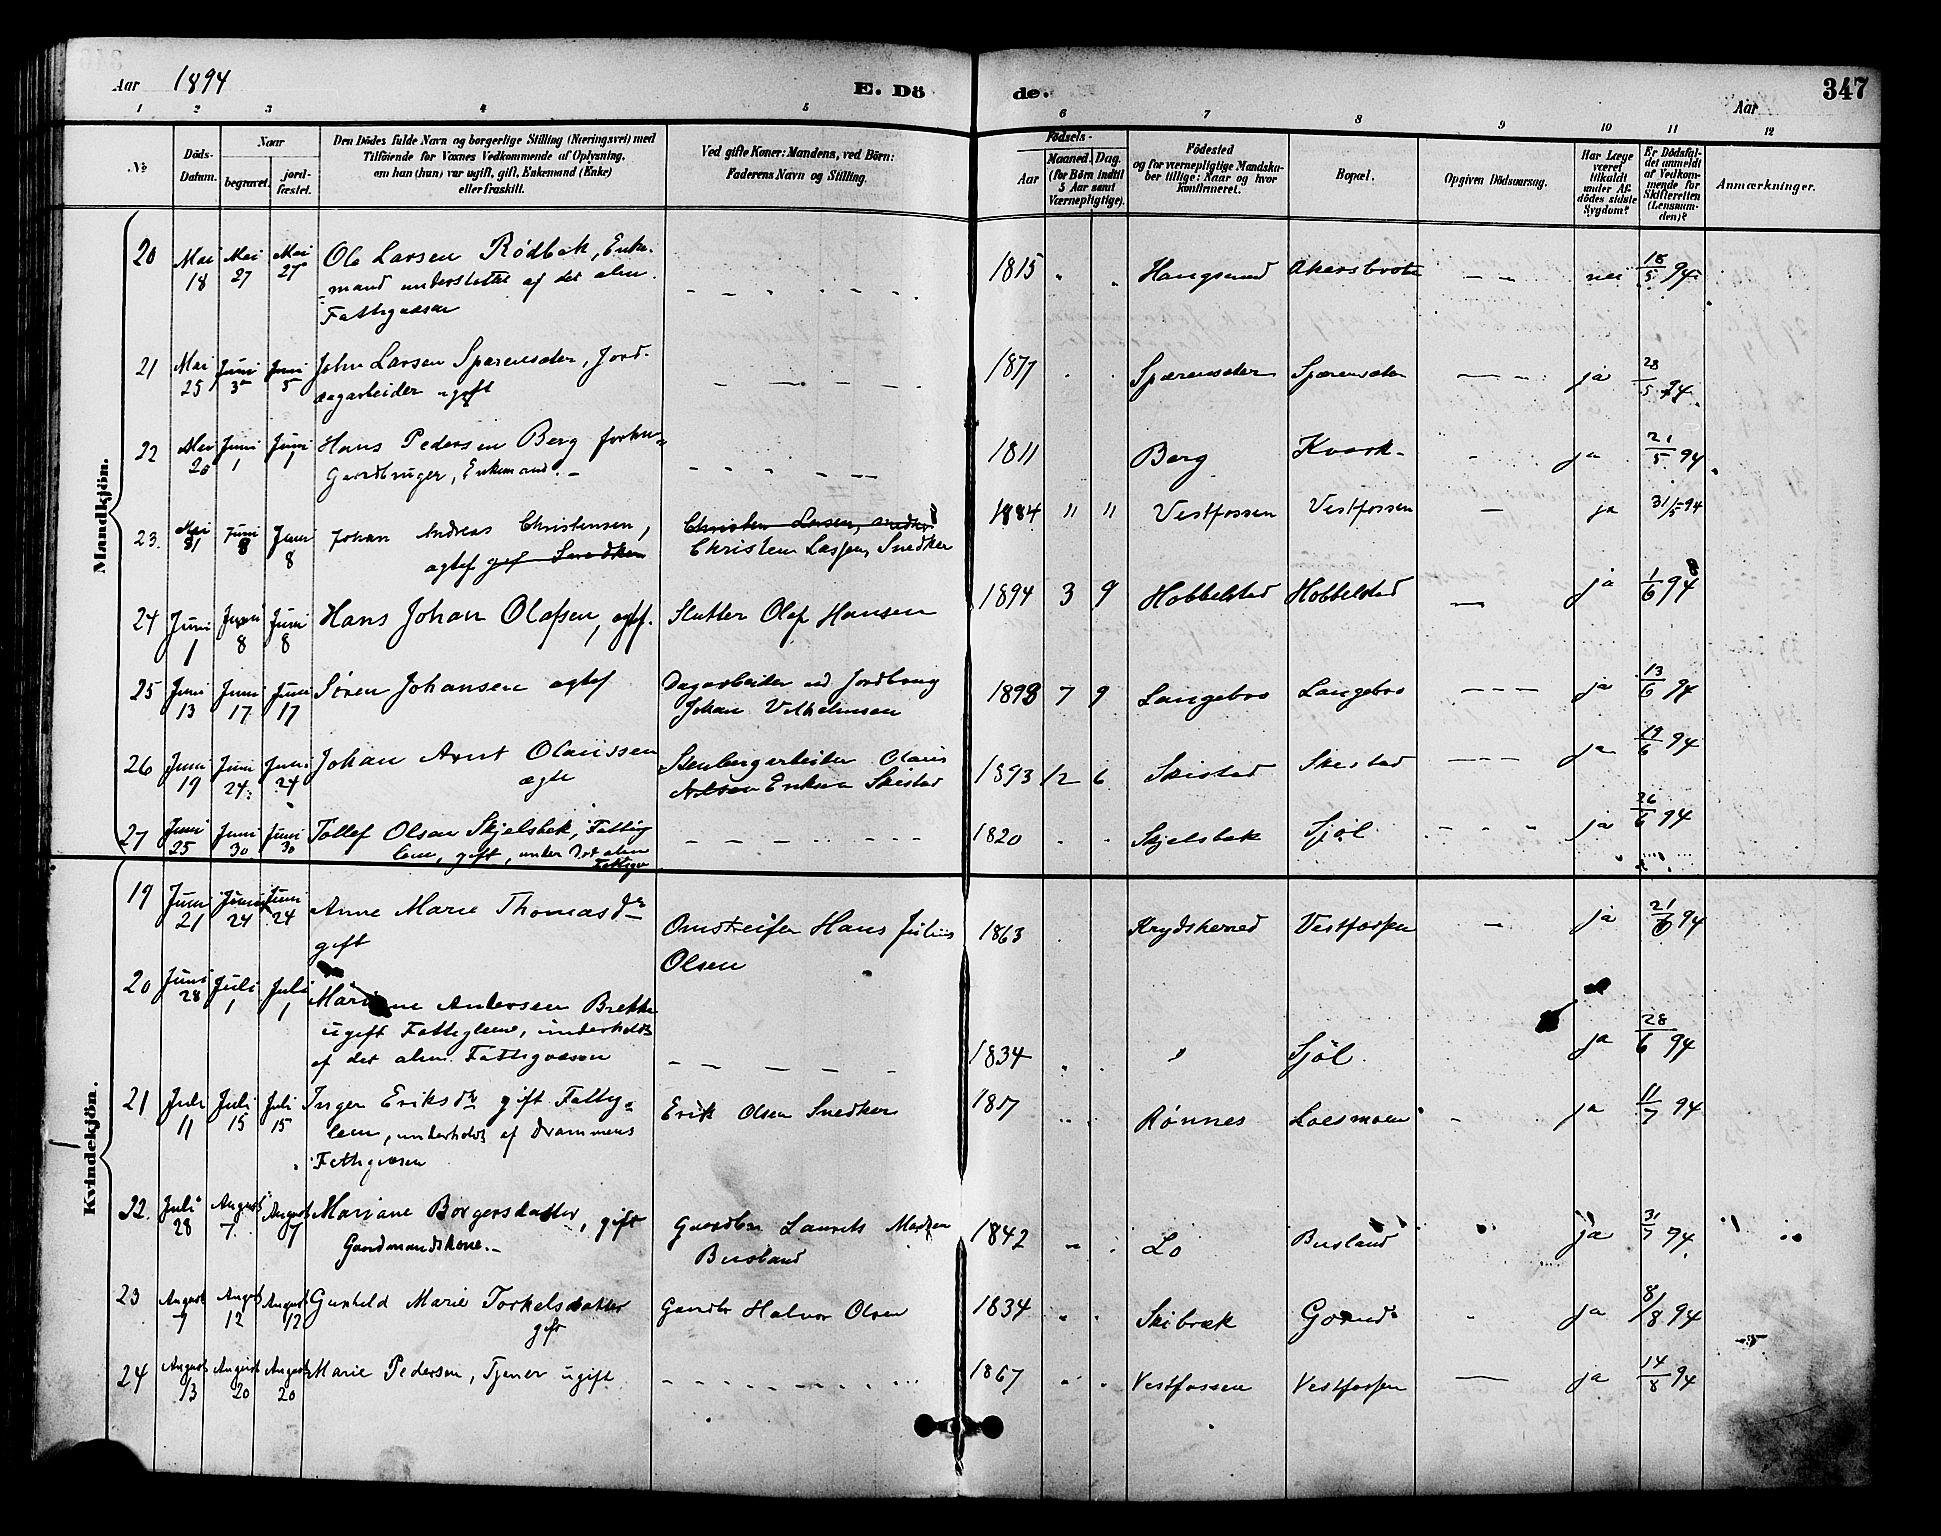 Aar 1894
E. Döde.
347
Aar
1 2 3 4 5 6 7 8 9 10 11 12
No
Döds-Datum.
Naar
begravet.
jordfæstet.
Den Dödes fulde Navn og borgerlige Stilling (Næringsvei) med Tilföiende for Voxnes Vedkommende af Oplysning, om han (hun) var ugift, gift, Enkemand (Enke) eller fraskilt.
Ved gifte Koner: Mandens, ved Börn: Faderens Navn og Stilling.
Födsels-
Aar
Maaned. Dag.
(for Börn indtil 5 Aar samt Værnepligtige).
Födested og for værnepligtige Mandskaber tillige: Naar og hvor Konfirmeret.
Bopæl.
Opgiven Dödsaarsag.
Har Læge været tilkaldt under Afdödes sidste Sygdom?
Er Dödsfaldet anmeldt af Vedkommende for Skifteretten (Lensmanden)?
Anmærkninger.
Mandkjön.
20 Mai 18 Mai 27 Mai 27 Ole Larsen Rødbak, Enkemand understøttet af det alm. Fattigvæsen 1815 Haugsund nei 18/5 94
21 Mai 25 Juni 3 Juni 5 John Larsen Spærensæter, Jorddagarbeider ugift 1877 Spærensæter Spærensæter ja 28/5 94
22 Mai 20 Juni 1 Juni 1 Hans Pedersen Berg forhn Gaardbruger, Enkemand. 1811 Berg Kvark ja 21/5 94
23. Mai 31 Juni 8 Juni 8 Johan Andreas Christensen, ægtef gif Snedker Christen Larsen, Snedker Christen Larssen, Snedker 1884 " " Vestfossen Vestfossen ja 31/5 94
24 Juni 1 Juni 8 Juni 8 Hans Johan Olafsen, ægtef. Slutter Olaf Hansen 1894 3 9 Hobbelstad Hobbelstad ja 1/6 94
25 Juni 13 Juni 17 Juni 17 Søren Johansen ægtef Dagarbeider ved Jordbrug Johan Vilhelmsen 1893 7 9 Langebro Langebro ja 13/6 94
26 Juni 19 Juni 24 Juni 24 Johan Arnt Olaussen ægte Stenbergarbeider Olaus Nilsen Eriksen Skistad 1893 12 6 Skistad Skistad ja 19/6 94
27 Juni 25 Juni 30 Juni 30 Tollef Olsen Skjelsbek, Fattiglem, gift, under det alm Fattigv 1820 Skjelsbek Sjøl ja 26/6 94
Kvindekjön.
19 Juni 21 Juni 24 Juni 24 Anne Marie Thomasdr gift Omstreifer Hans Julius Olsen 1863 Krydsherred Vestfossen ja 21/6 94
20 Juni 28 Juli 1 Juli 1 Mariane Andersen Brekke ugift Fattiglem, underholdt af det alm. Fattigvæsen 1834 " Sjøl ja 28/6 94
21 Juli 11 Juli 15 Juli 15 Inger Eriksdtr gift Fattiglem, underholdt af Drammens Fattigvæsen Erik Olsen Snedker 1817 Rønnes Loesmoen ja 11/7 94
22. Juli 28 August 7 August 7 Mariane Borgersdatter, gift Gaardmandskone. Gaardbr Laurits Madsen Busland 1842 Lo Busland ja 31/7 94
23 August 7 August 12 August 12 Gunhild Marie Torkelsdatter gift Gaardbr Halvor Olsen 1834 Skibræk ja 8/8 94
24 August 13 August 20 August 20 Marie Pedersen, Tjener ugift 1867 Vestfossen Vestfossen ja 14/8 94